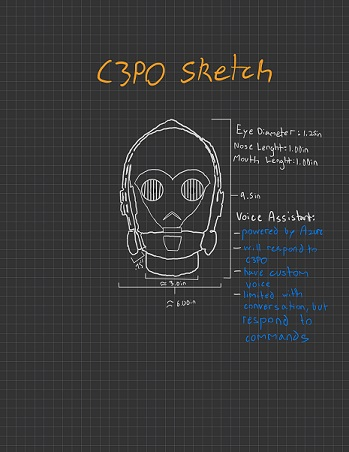 C3PO Sketch
Eye Diameter: 1.25in
Nose Lenght: 1.00in
Mouth Lenght: 1.00in
9.5in
Voice Assistant:
- powered by Azure
- will respond to
C3PO
- have custom
voice
- limited with
conversation, but
respond to
commands
≈ 3.0in
≈ 6.00in